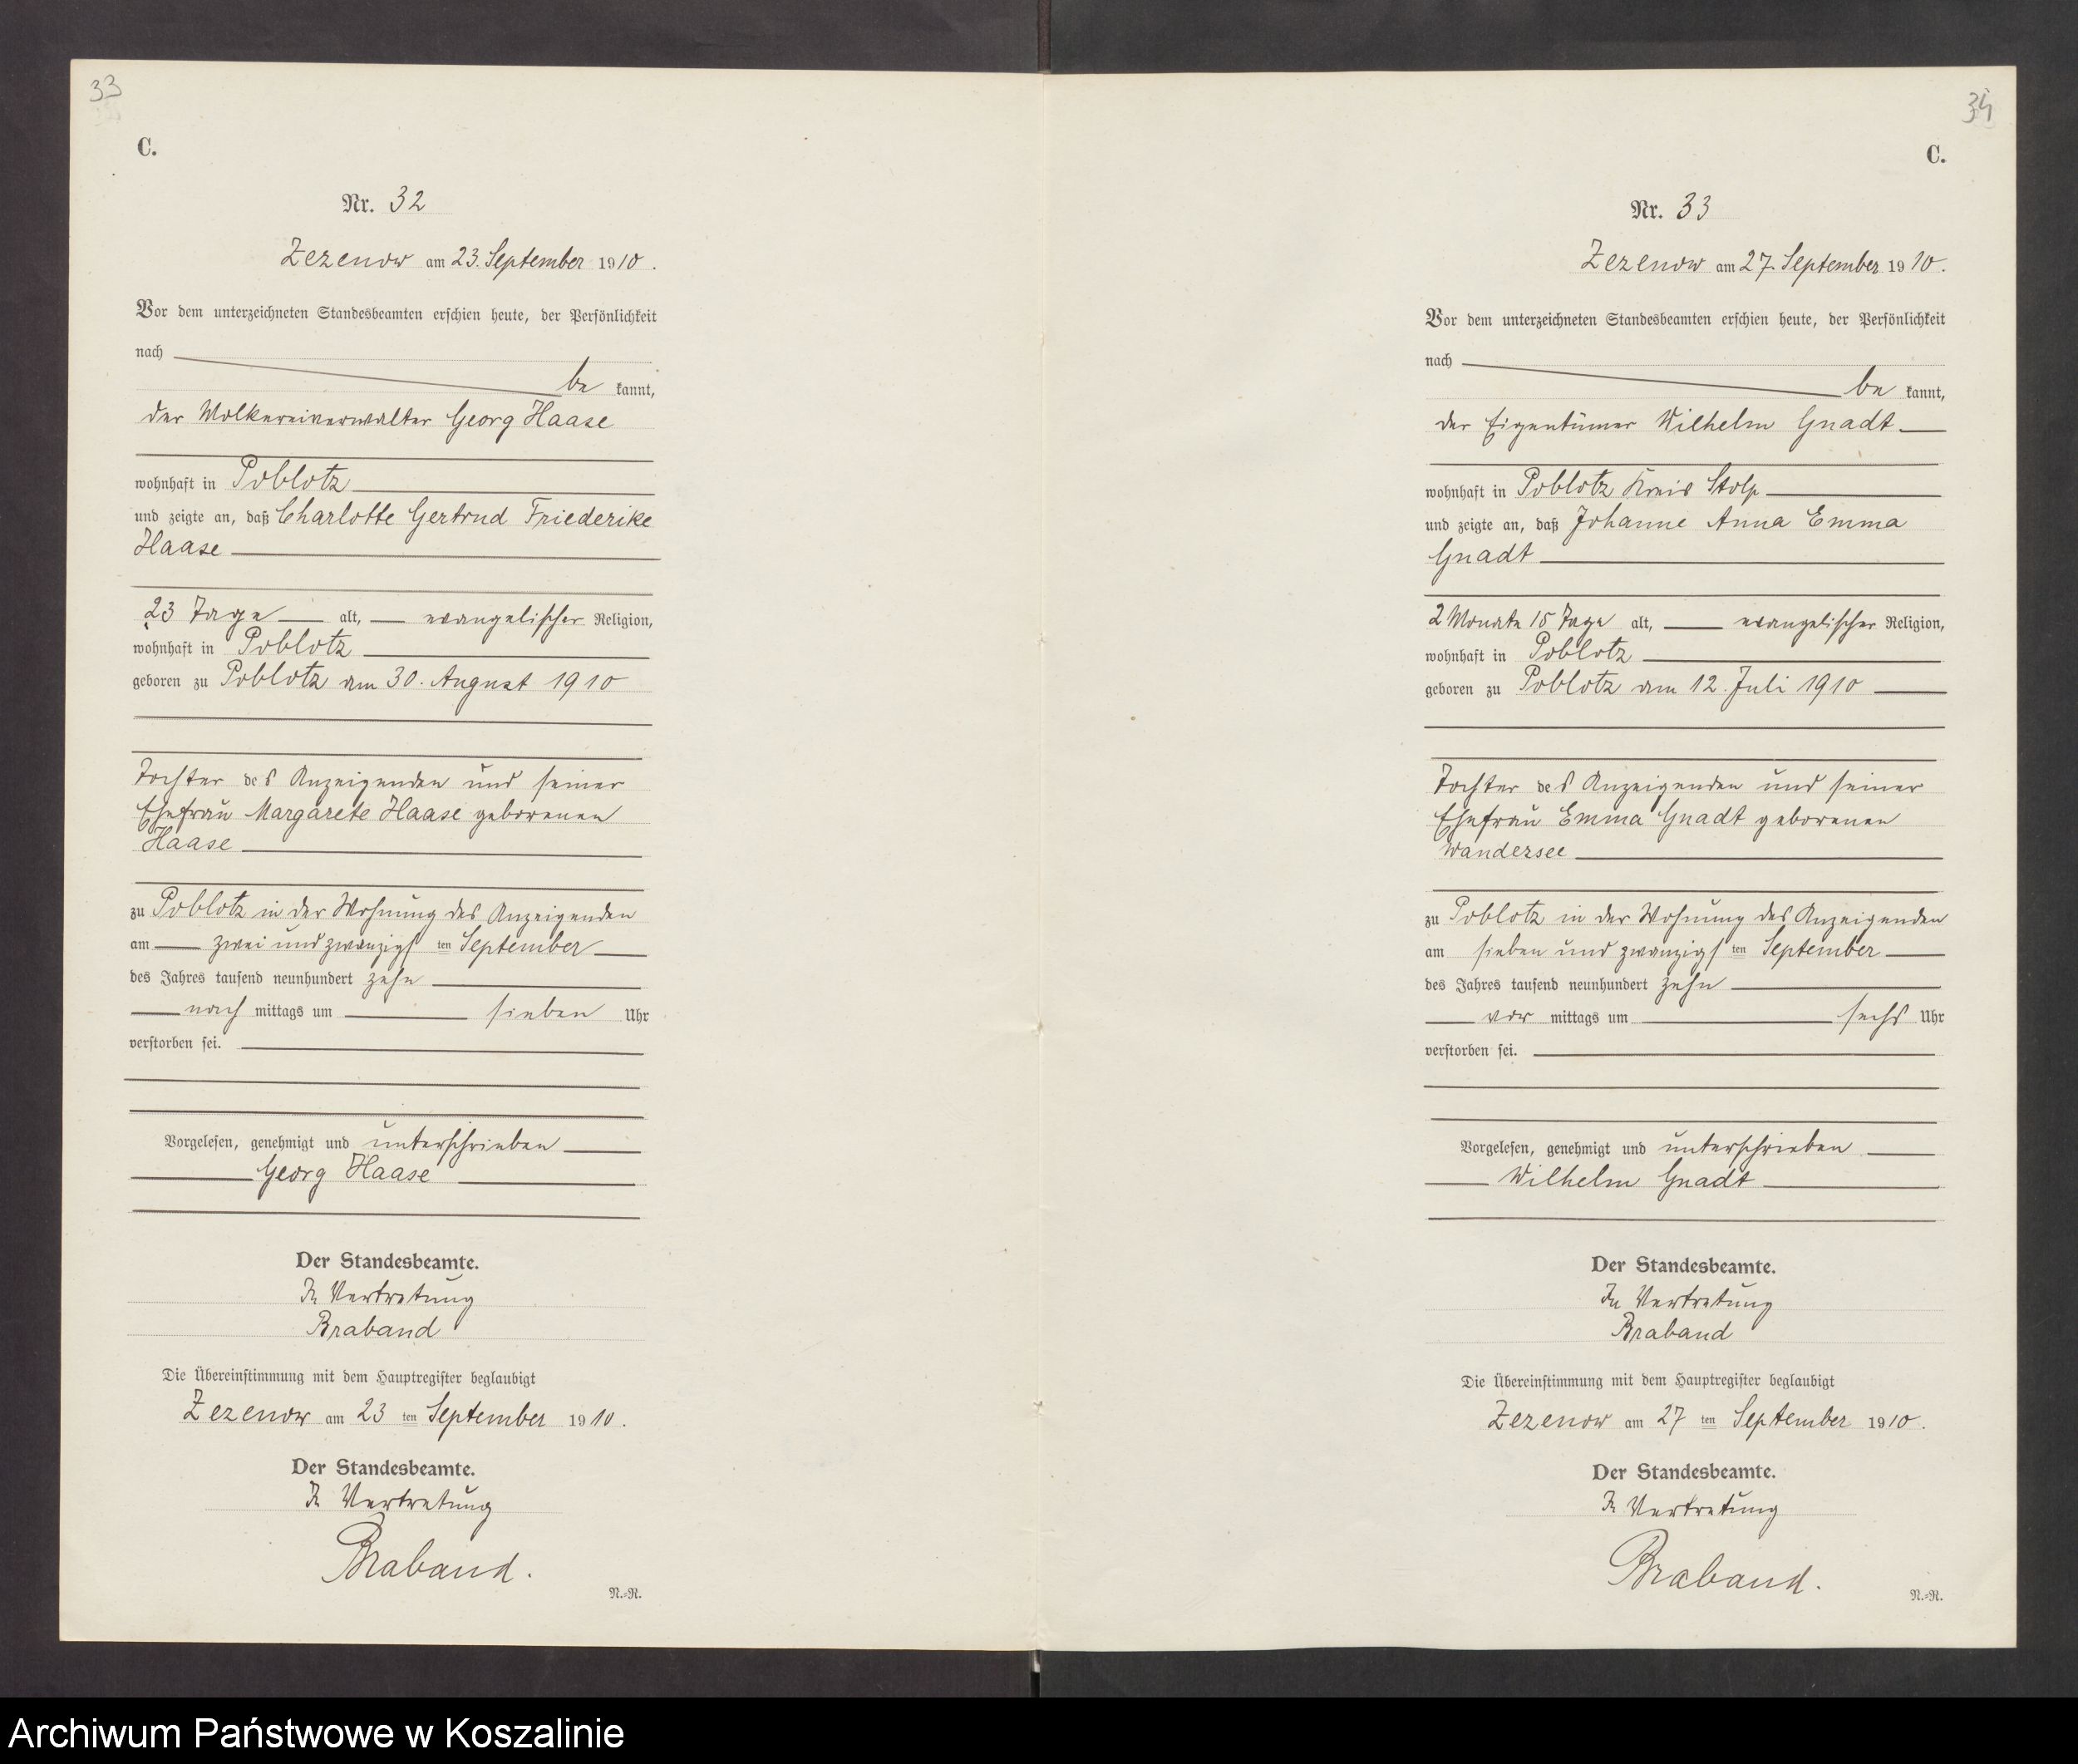 33
C.
Nr. 32
Zezenow am 23. September 1910.
Vor dem unterzeichneten Standesbeamten erschien heute, der Persönlichkeit
nach
be kannt,
der Molkereiverwalter Georg Haase
wohnhaft in Poblotz
und zeigte an, daß Charlotte Gertrud Friederike
Haase
23 Tage alt, evangelischer Religion,
wohnhaft in Poblotz
geboren zu Poblotz am 30. August 1910
Tochter des Anzeigenden und seiner
Ehefrau Margarete Haase geborenen
Haase
zu Poblotz in der Wohnung des Anzeigenden
am zwei und zwanzigsten September
des Jahres tausend neunhundert zehn
nach mittags um sieben Uhr
verstorben sei.
Vorgelesen, genehmigt und unterschrieben
Georg Haase
Der Standesbeamte.
In Vertretung
Braband
Die Übereinstimmung mit dem Hauptregister beglaubigt
Zezenow am 23 ten September 1910.
Der Standesbeamte.
In Vertretung
Braband.
N.=R.
34
C.
Nr. 33
Zezenow am 27. September 1910.
Vor dem unterzeichneten Standesbeamten erschien heute, der Persönlichkeit
nach
be kannt,
der Eigentümer Wilhelm Gnadt
wohnhaft in Poblotz Kreis Stolp
und zeigte an, daß Johanne Anna Emma
Gnadt
2 Monate 15 Tage alt, evangelischer Religion,
wohnhaft in Poblotz
geboren zu Poblotz am 12. Juli 1910
Tochter des Anzeigenden und seiner
Ehefrau Emma Gnadt geborenen
Wandersee
zu Poblotz in der Wohnung des Anzeigenden
am sieben und zwanzigsten September
des Jahres tausend neunhundert zehn
vor mittags um sechs Uhr
verstorben sei.
Vorgelesen, genehmigt und unterschrieben
Wilhelm Gnadt
Der Standesbeamte.
In Vertretung
Braband
Die Übereinstimmung mit dem Hauptregister beglaubigt
Zezenow am 27 ten September 1910.
Der Standesbeamte.
In Vertretung
Braband.
N.=R.
Archiwum Państwowe w Koszalinie